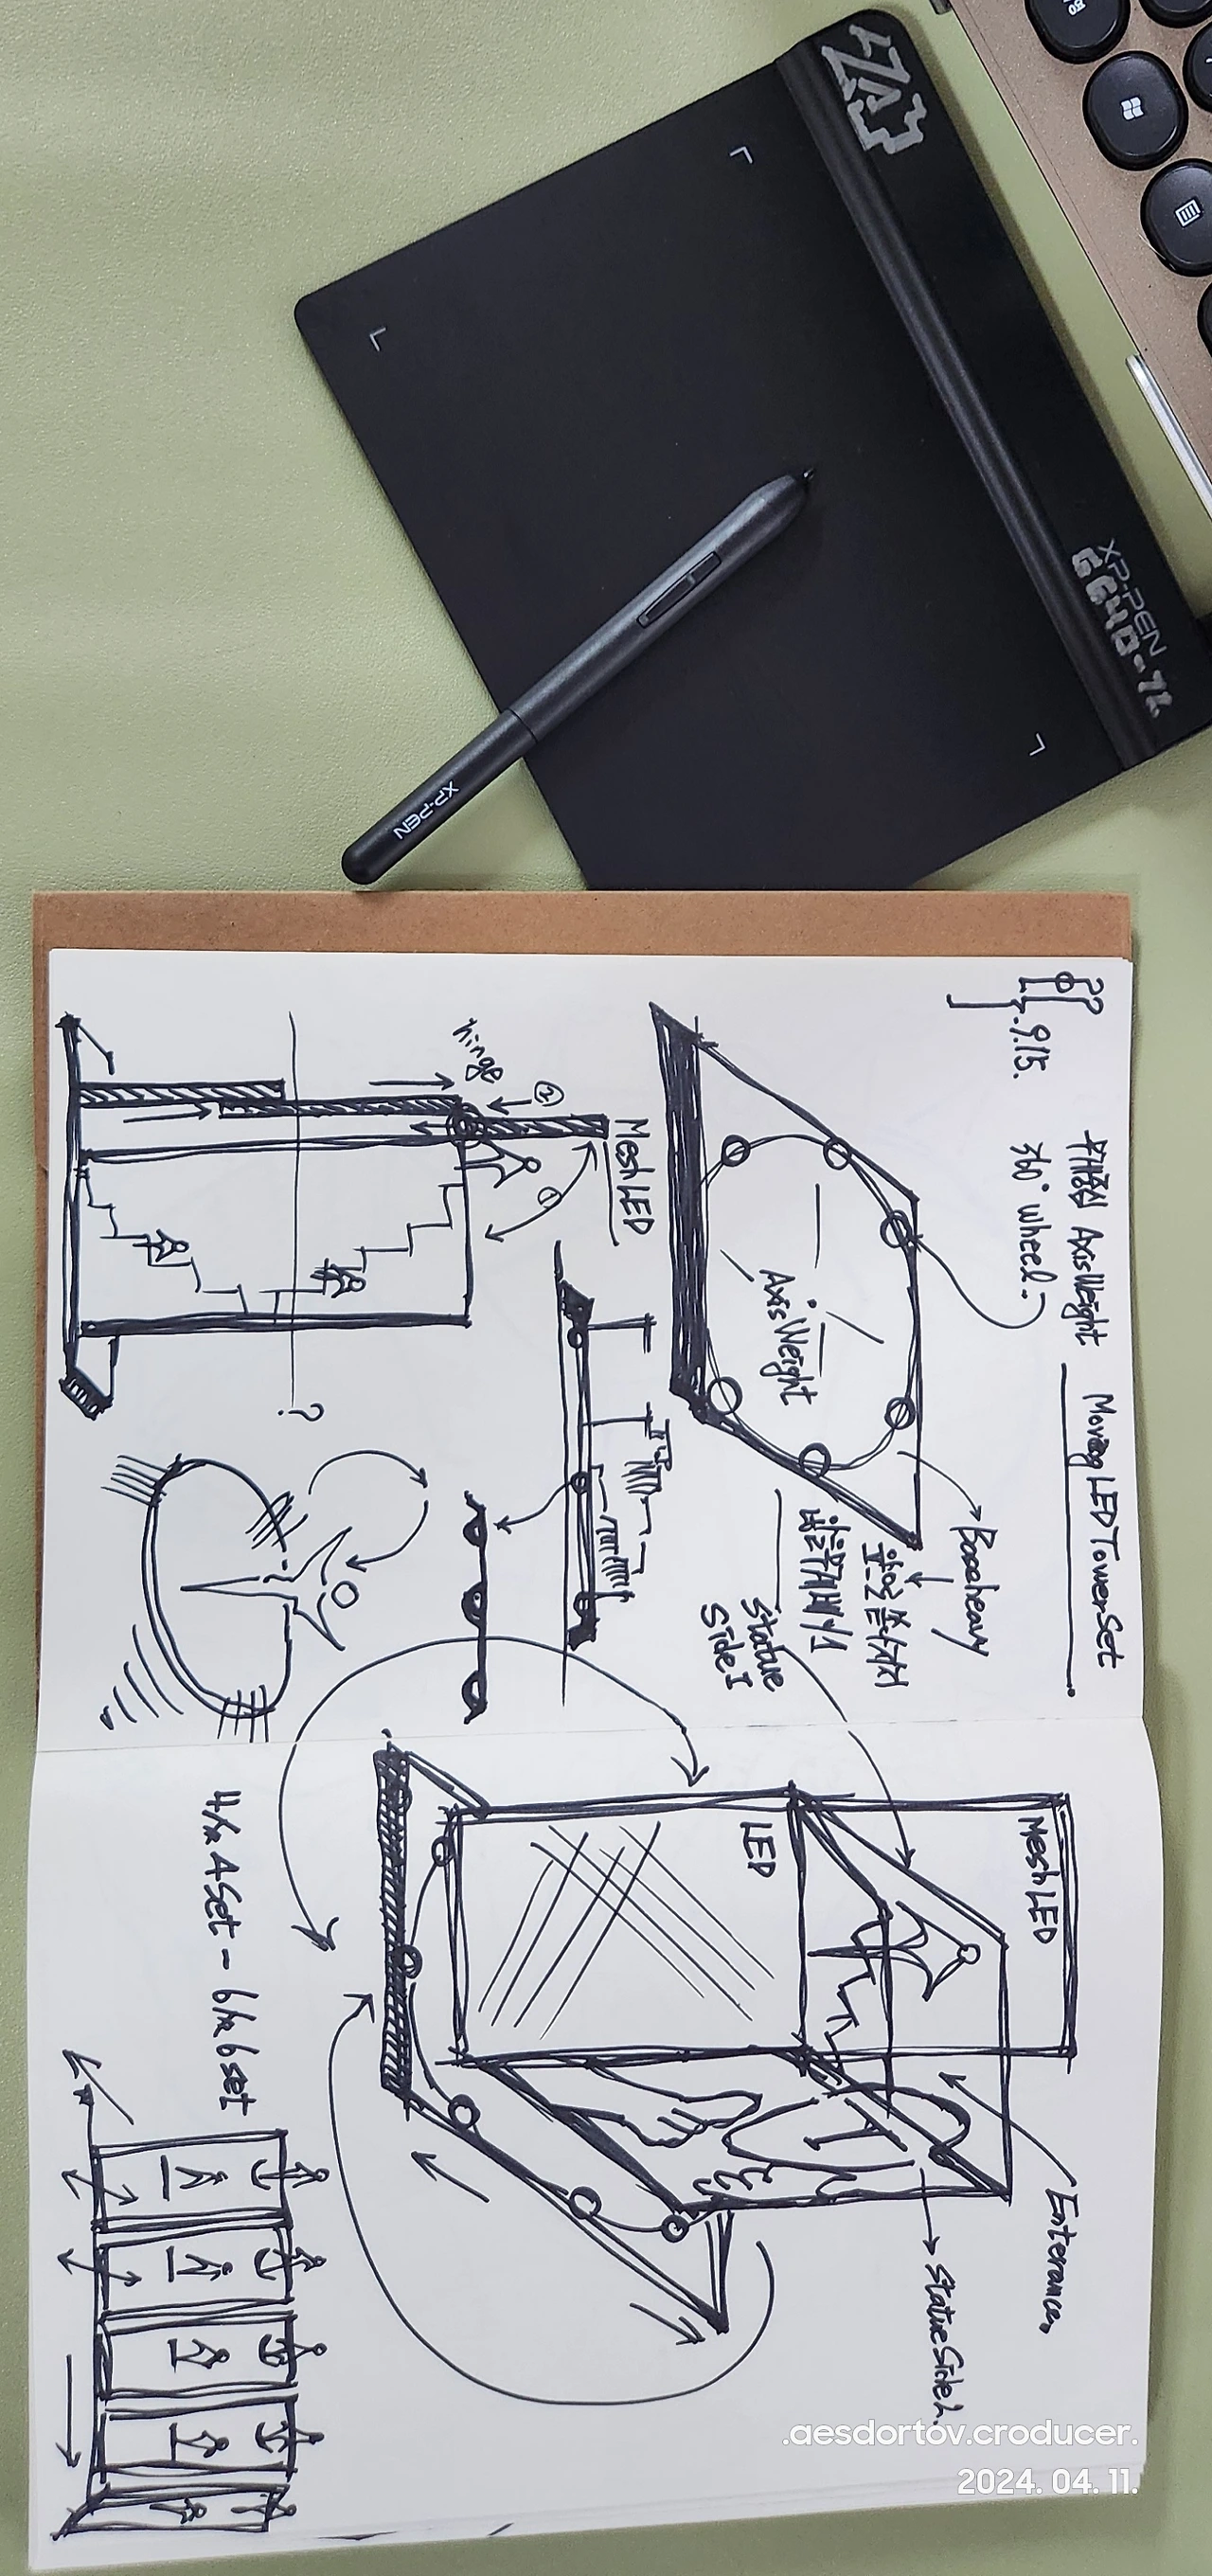 XP-PEN
XP-PEN
9.15.
무게중심 Axis Weight
360° wheel.
Moving LED Tower Set
Axis Weight
Base heavy
Statue
Side I
hinge
②
Mesh LED
①
?
Mesh LED
LED
Enterance
Statue Side 2.
4/n 4 Set - 6/n 6 set
.aesdortov.croducer.
2024. 04. 11.